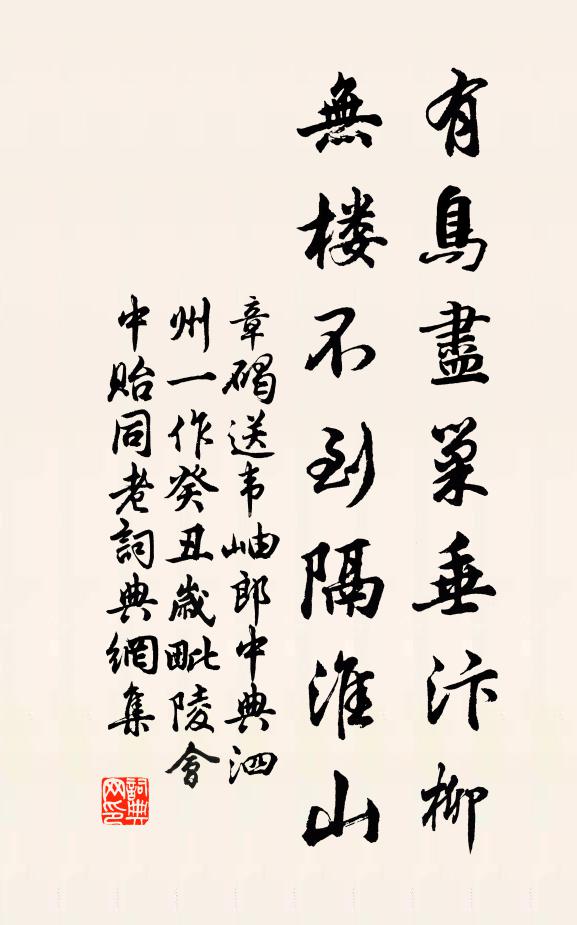 有鳥盡巢垂汴柳
無楼不到隔淮山
章碣送韦岫郎中典泗
州一作癸丑歲毗陵會
中貽同老詞典網集
詞典网印